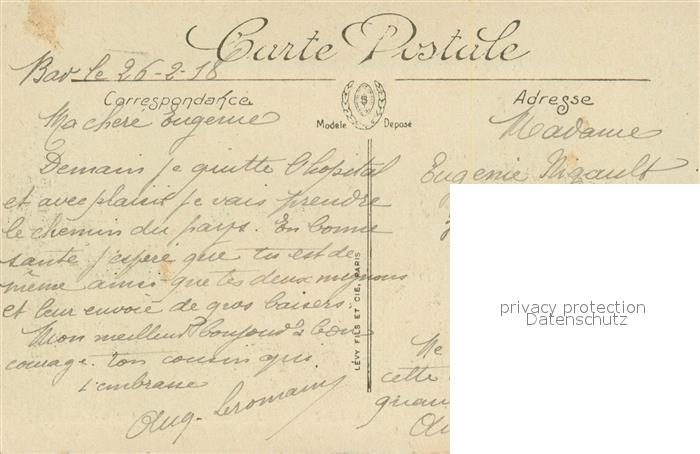 Carte Postale
Bar le 26-2-18
Correspondance
Ma chere Eugenie
Demain je quitte l'hopital
et avec plaisir je vais prendre
le chemin du pays. En bonne
santé j'espere que tu est de
même ainsi que tes deux mignons
et leur envoie de gros baisers.
Mon meilleur bonjour à
courage. Ton cousin qui
t'embrasse
Aug. Leromain
Modèle Déposé
LÉVY FILS ET CIE, PARIS
Adresse
Madame
Eugenie Rigault
cette
privacy protection
Datenschutz